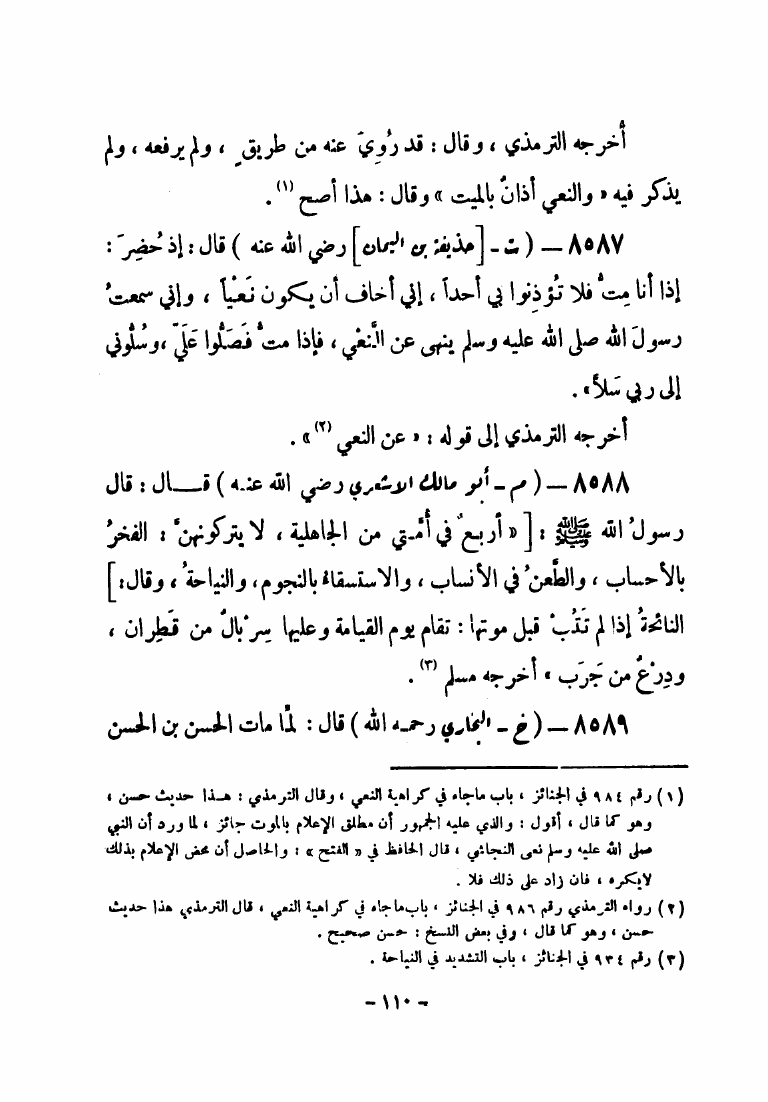 أخرجه الترمذي ، وقال : قد رُوِيَ عنه من طريقٍ ، ولم يرفعه ، ولم
يذكر فيه « والنعي أذانٌ بالميت » وقال : هذا أصح (١) .
٨٥٨٧ — ( ت - [حذيفة بن اليمان] رضي الله عنه ) قال : إذ حُضِرَ :
إذا أنا مِتُّ فلا تُؤذِنوا بي أحداً ، إني أخاف أن يكون نَعْياً ، وإني سمعتُ
رسولَ الله صلى الله عليه وسلم ينهى عن النَّعْي ، فإذا متُّ فَصَلُّوا عَلَيَّ ، وسُلُّوني
إلى ربي سَلاً» .
أخرجه الترمذي إلى قوله : « عن النعي (٢) » .
٨٥٨٨ — ( م - أبو مالك الأشعري رضي الله عنه ) قـــال : قال
رسولُ الله ﷺ : [ « أربعٌ في أُمَّتي من الجاهلية ، لا يتركونهنَّ : الفخرُ
بالأحساب ، والطَّعنُ في الأنساب ، والاستسقاءُ بالنجوم ، والنياحةُ ، وقال : ]
النائحةُ إذا لم تَتُبْ قبل موتها : تقام يوم القيامة وعليها سِرْبالٌ من قَطِران ،
ودِرْعٌ من جَرَب » أخرجه مسلم (٣) .
٨٥٨٩ — ( خ - البخاري رحمه الله ) قال : لمَّا مات الحسن بن الحسن
(١) رقم ٩٨٤ في الجنائز ، باب ماجاء في كراهية النعي ، وقال الترمذي : هــذا حديث حسن ،
وهو كما قال ، أقول : والذي عليه الجمهور أن مطلق الإعلام بالموت جائز ، لما ورد أن النبي
صلى الله عليه وسلم نعى النجاشي ، قال الحافظ في « الفتح » : والحاصل أن محض الإعلام بذلك
لايكره ، فان زاد على ذلك فلا .
(٢) رواه الترمذي رقم ٩٨٦ في الجنائز ، باب ماجاء في كراهية النعي ، قال الترمذي هذا حديث
حسن ، وهو كما قال ، وفي بعض النسخ : حسن صحيح .
(٣) رقم ٩٣٤ في الجنائز ، باب التشديد في النياحة .
- ١١٠ -